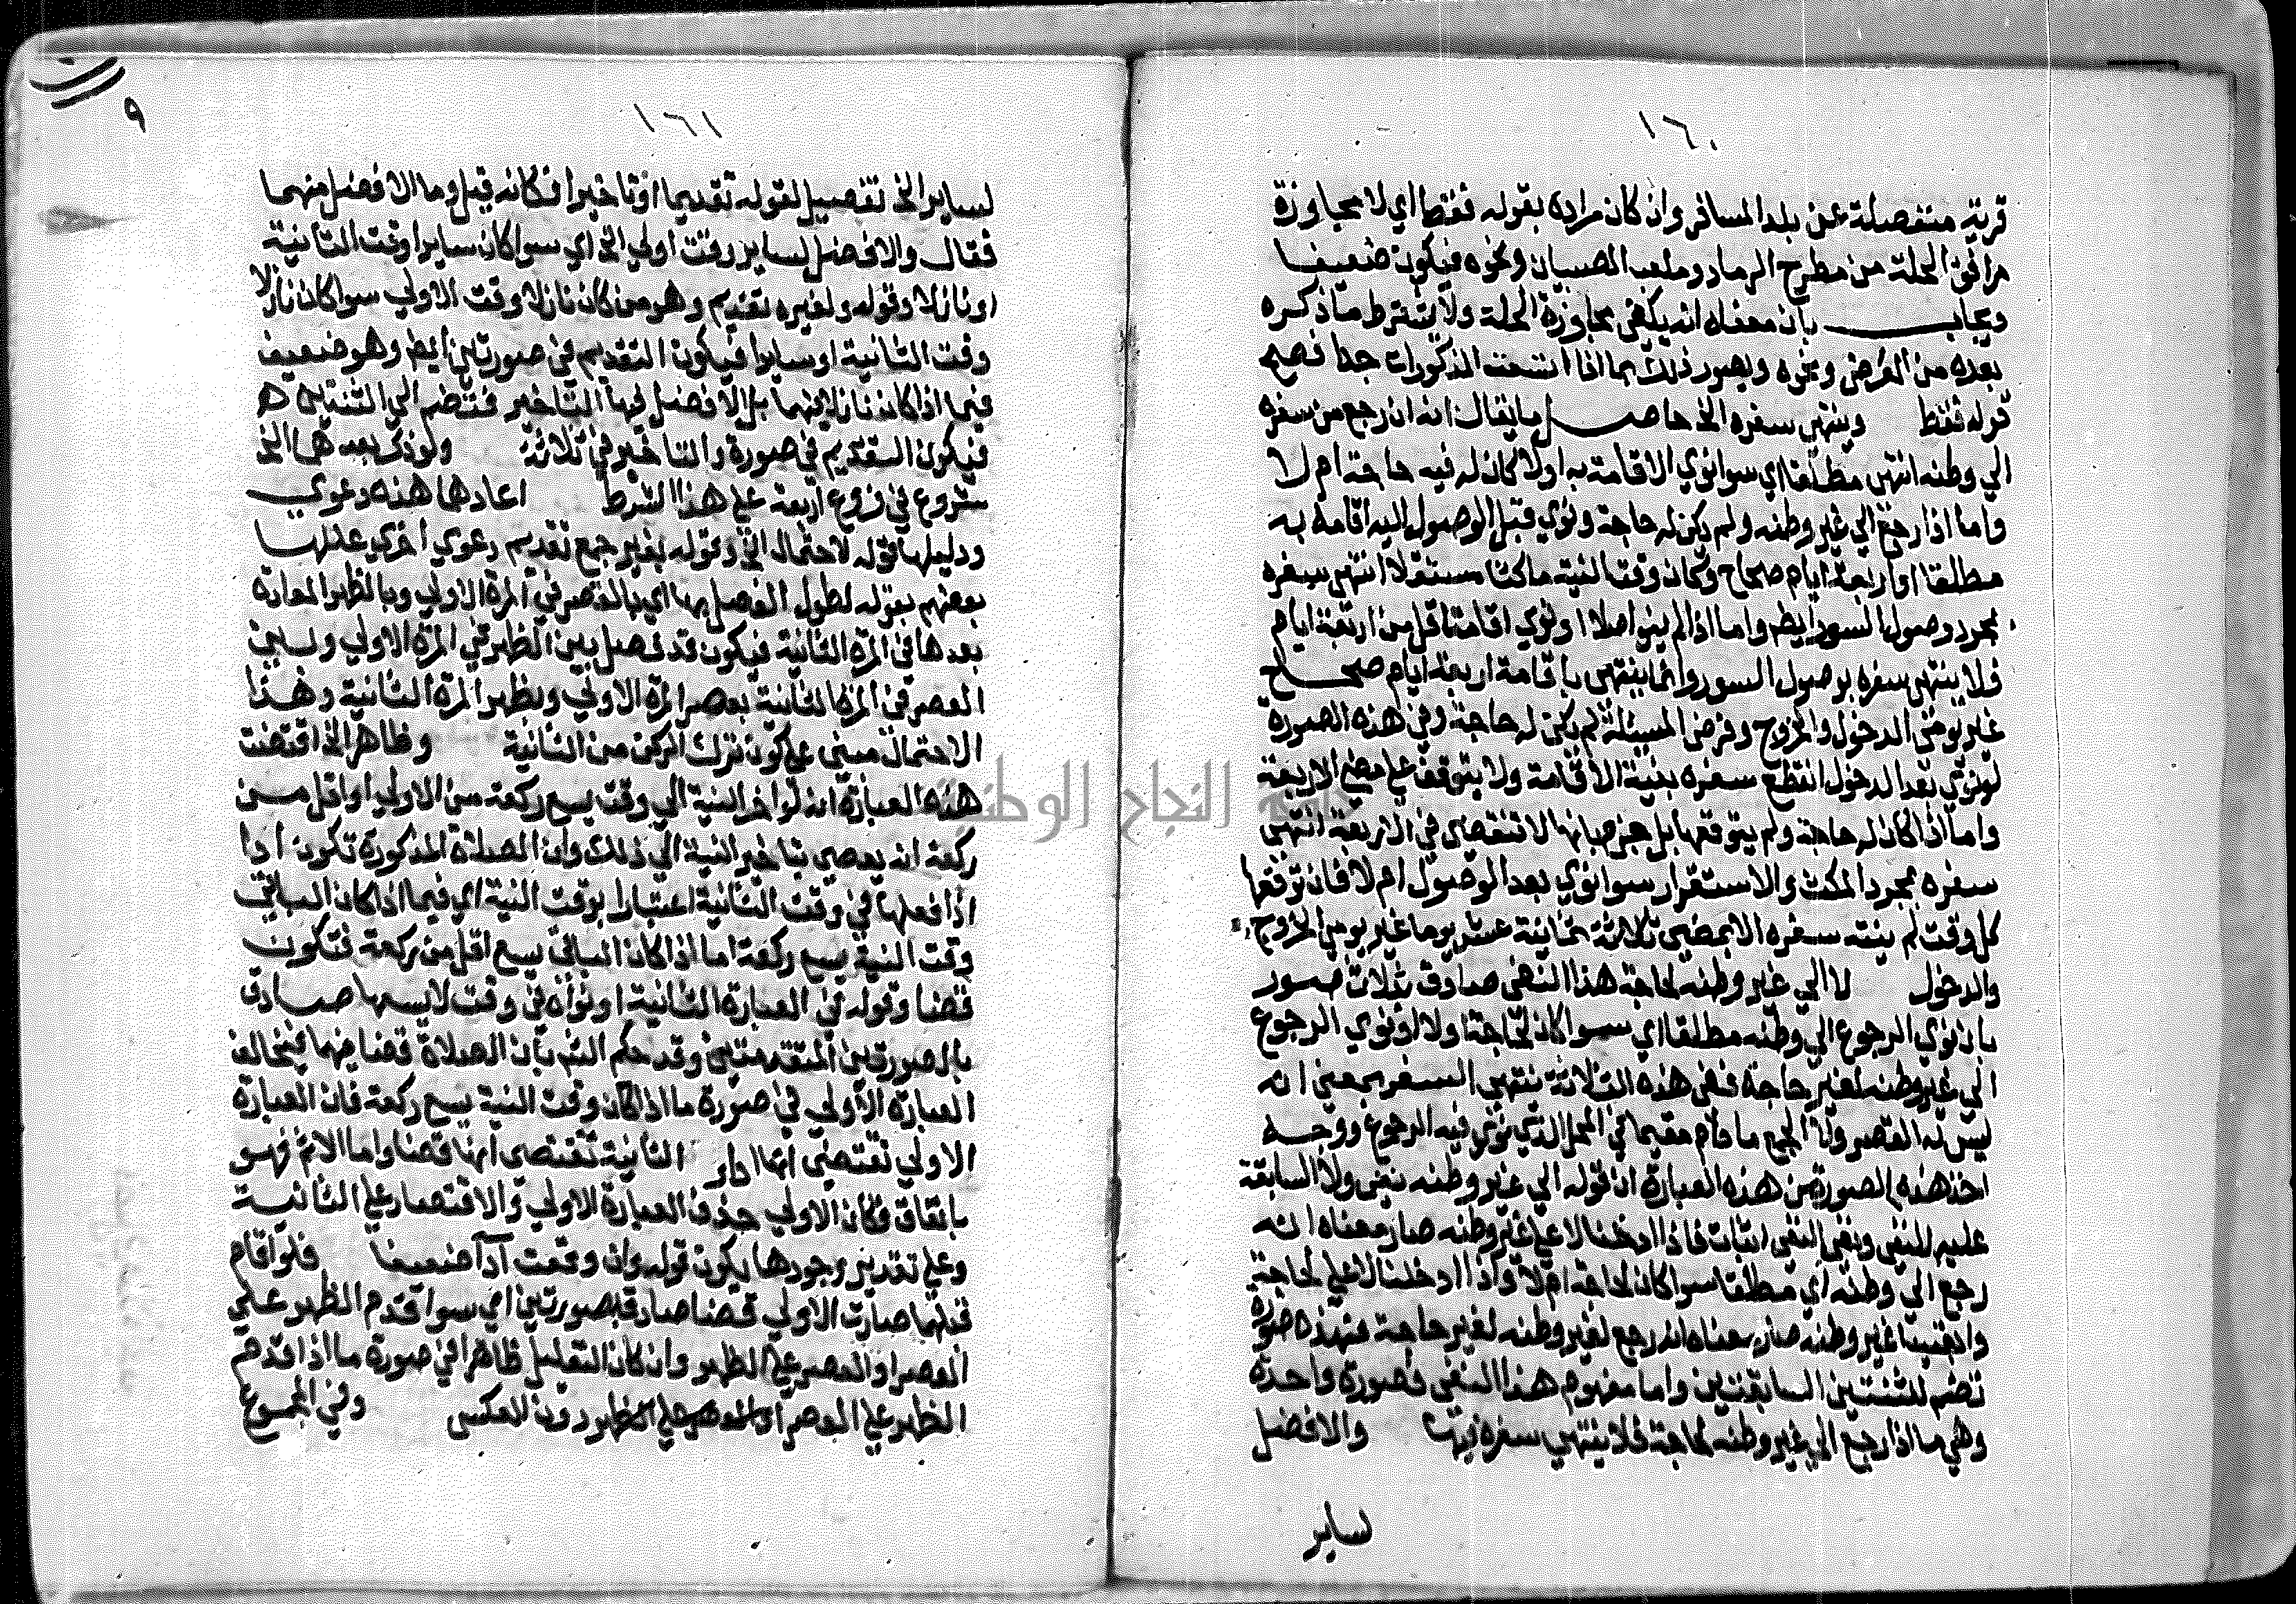 ١٦٠
قرية منفصلة عن بلد المسافر وان كان مراده بقوله فقط اي لا مجاوزة
مرافق الحلة من مطرح الرماد وملعب الصبيان ونحوه فيكون ضعيفا
ويجاب بان معناه انه يكفي مجاوزة الحلة ولا يشترط ما ذكره
بعده من العرض ونحوه ويصور ذلك بما اذا اتسعت المذكورات جدا فصح
قوله فقط وينتهي سفره الخ حاصل ما يقال انه ان رجع من سفره
الي وطنه انتهي مطلقا اي سوا نوي الاقامة به اولا كان له فيه حاجة ام لا
واما اذا رجع الي غير وطنه ولم يكن له حاجة ونوي قبل الوصول اليه اقامة به
مطلقا او اربعة ايام صحاح وكان وقت النية ماكثا مستقلا انتهي سفره
بمجرد وصول السور ايضا واما اذا لم ينو اصلا او نوي اقامة اقل من اربعة ايام
فلا ينتهي سفره بوصول السور وانما ينتهي باقامة اربعة ايام صحاح
غير يومي الدخول والخروج وفرض المسئلة لم يكن له حاجة وفي هذه الصورة
لو نوي بعد الدخول انقطع سفره بنية الاقامة ولا يتوقف علي مضي الاربعة
واما اذا كان له حاجة ولم يتوقعها بل جزم بانها لا تنقضي في الاربعة انتهي
سفره بمجرد المكث والاستقرار سوا نوي بعد الوصول ام لا فان توقعها
كل وقت لم ينته سفره الا بمضي ثلاثة ثمانية عشر يوما غير يومي الخروج
والدخول لا الي غير وطنه لحاجة هذا النفي صادق بثلاث صور
بان نوي الرجوع الي وطنه مطلقا اي سوا كان لحاجة اولا او نوي الرجوع
الي غير وطنه لغير حاجة ففي هذه الثلاثة ينتهي السفر بمعني انه
ليس له القصر ولا الجمع ما دام مقيما في المحل الذي نوي فيه الرجوع ووجه
اخذ هذه الصور من هذه العبارة ان قوله الي غير وطنه نفي ولا السابقة
عليه للنفي ونفي النفي اثبات فاذا ادخلنا لا علي غير وطنه صار معناه انه
رجع الي وطنه اي مطلقا سوا كان لحاجة ام لا واذا ادخلنا لا علي لحاجة
وابقينا غير وطنه صار معناه انه رجع لغير وطنه لغير حاجة فهذه صورة
تضم للثنتين السابقتين واما مفهوم هذا النفي فصورة واحدة
وهي ما اذا رجع الي غير وطنه لحاجة فلا ينتهي سفره فيها والافضل
لساير
٩
١٦١
لساير الخ تفصيل لقوله تقديما او تاخيرا فكانه قيل وما الافضل منهما
فقال والافضل لساير وقت اولي الخ اي سوا كان سايرا وقت الثانية
او نازلا وقوله ولغيره تقديم وهو من كان نازلا وقت الاولي سوا كان نازلا
وقت الثانية او سايرا فيكون التقديم في صورتين ايضا وهو ضعيف
فيما اذا كان نازلا فيهما بل الافضل فيها التاخير فتضم الي الثنتين
فيكون التقديم في صورة والتاخير في ثلاثة ولو ذكر بعدهما الخ
شروع في فروع اربعة علي هذا الشرط اعادها هذه دعوي
ودليلها قوله لاحتمال الخ وقوله بغير جمع تقديم دعوي اخري عللها
بعضهم بقوله لطول الفصل بها اي بالعصر في المرة الاولي وبالظهر المعادة
بعدها في المرة الثانية فيكون قد فصل بين الظهر في المرة الاولي وبين
العصر في المرة الثانية بعصر المرة الاولي وبظهر المرة الثانية وهذا
الاحتمال مبني علي كون ترك الركن من الثانية وظاهر الخ اقتضت
هذه العبارة انه لو اخر النية الي وقت يسع ركعة من الاولي او اقل من
ركعة انه يعصي بتاخير النية الي ذلك وان الصلاة المذكورة تكون ادا
اذا فعلها في وقت الثانية اعتبارا بوقت النية اي فيما اذا كان الباقي
وقت النية يسع ركعة اما اذا كان الباقي يسع اقل من ركعة فتكون
قضا وقوله في العبارة الثانية او نواه في وقت لا يسعها صادق
بالصورتين المتقدمتين وقد حكم الشم بان الصلاة قضا فيهما فيخالف
العبارة الاولي في صورة ما اذا كان وقت النية يسع ركعة فان العبارة
الاولي تقتضي انها اداء الثانية تقتضي انها قضا واما الاثم فهو
باتفاق وكان الاولي حذف العبارة الاولي والاقتصار علي الثانية
وعلي تقدير وجودها يكون قوله وان وقعت ادا ضعيفا فلو اقام
فيهما صارت الاولي قضا صادق بصورتين اي سوا قدم الظهر علي
العصر او العصر علي الظهر وان كان التعليل ظاهرا في صورة ما اذا قدم
الظهر علي العصر او العصر علي الظهر دون العكس وفي المجموع
جامعة النجاح الوطنية